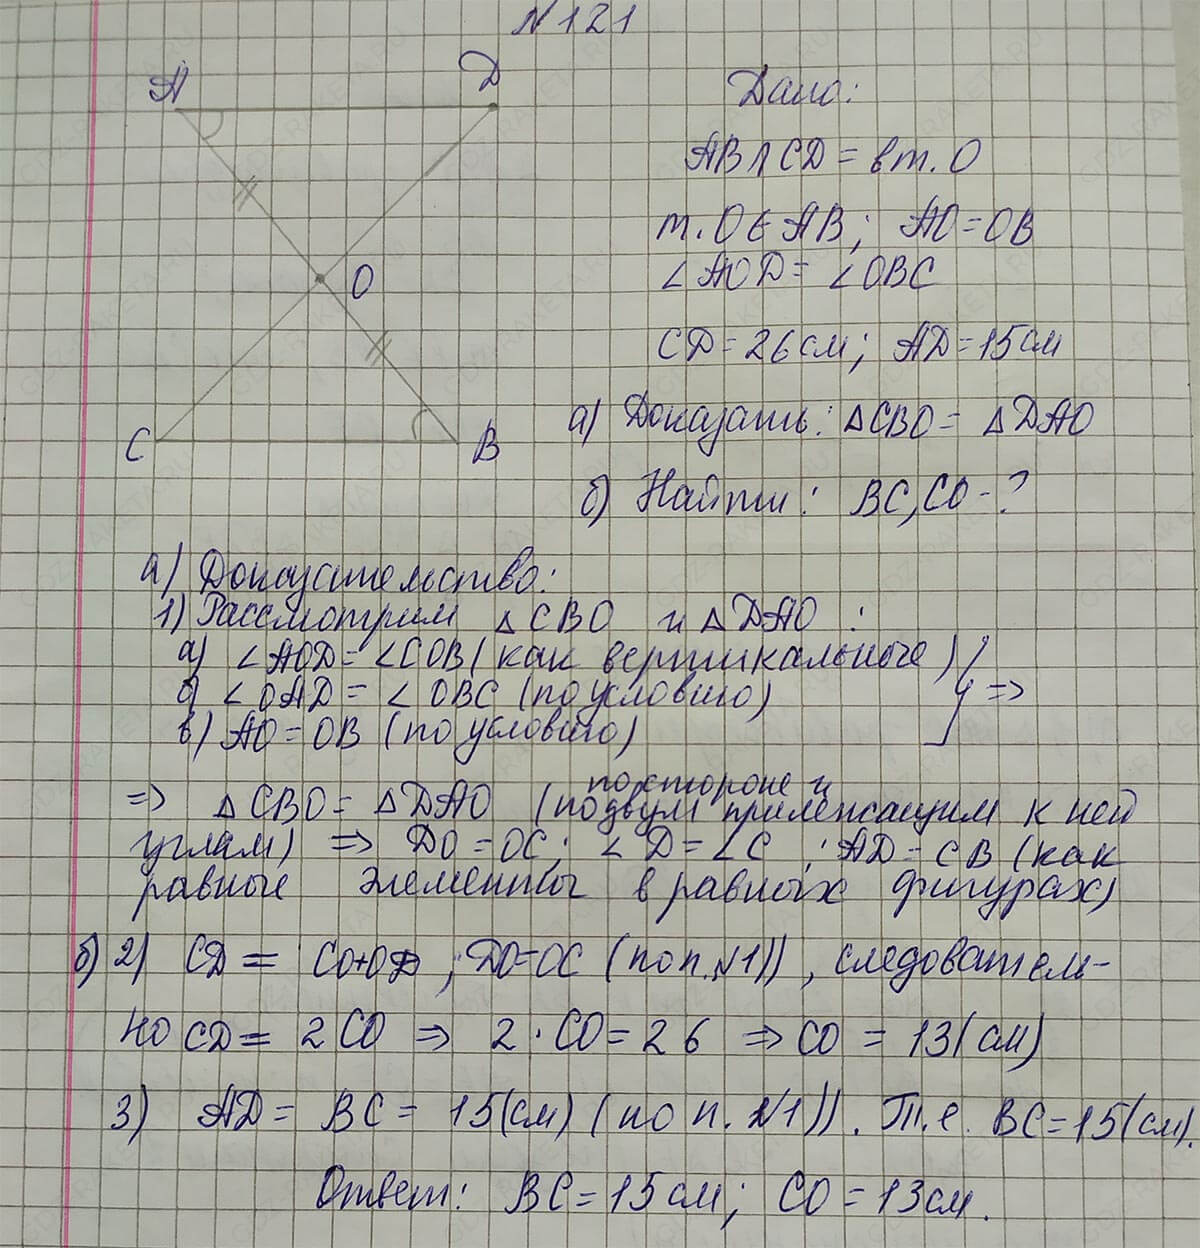 N 121
A
D
O
C
B
Дано:
AB∩CD = в т. O
т. O ∈ AB; AO = OB
∠AOD = ∠OBC
CD = 26 см; AD = 15 см
а) Доказать: △CBO = △DAO
б) Найти: BC, CO - ?
а) Доказательство:
1) Рассмотрим △CBO и △DAO :
а) ∠AOD = ∠COB (как вертикальные)
б) ∠OAD = ∠OBC (по условию) } =>
в) AO = OB (по условию)
по стороне и
=> △CBO = △DAO (по двум прилежащим к ней
углам) => DO = OC; ∠D = ∠C ; AD = CB (как
равные элементы в равных фигурах)
б) 2) CD = CO+OD ; DO=OC (по п. N1)) , следователь-
но CD = 2 CO => 2 · CO = 26 => CO = 13 (см)
3) AD = BC = 15(см) (по п. N1)). Т.е. BC = 15(см).
Ответ: BC = 15 см; CO = 13 см.